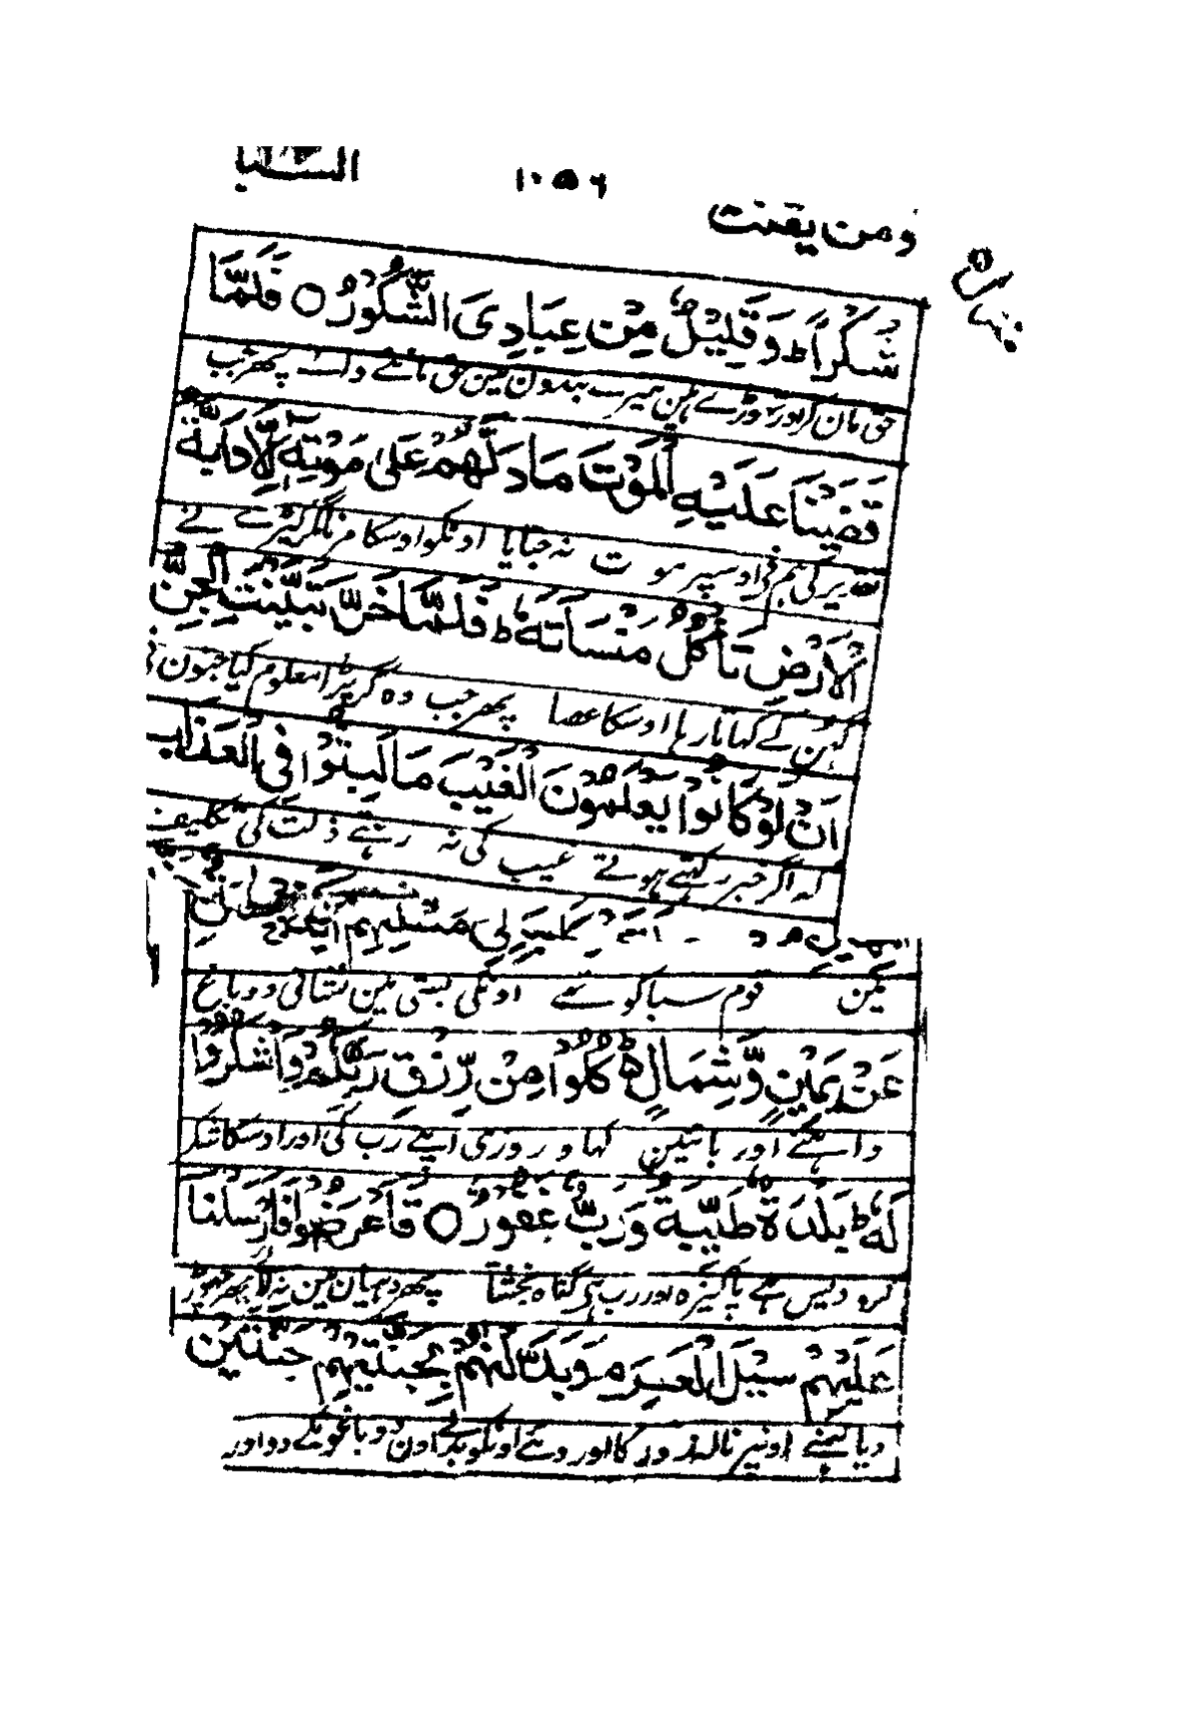 السبا
۱۰۵۶
ومن یقنت
شُكْرًا ؕ وَقَلِيْلٌ مِّنْ عِبَادِيَ الشَّكُوْرُ ○ فَلَمَّا
حق مان کر اور تھوڑے ہین میرے بندون مین حق ماننے والے پھر جب
قَضَيْنَا عَلَيْهِ الْمَوْتَ مَا دَلَّهُمْ عَلٰى مَوْتِهٖٓ اِلَّا دَآبَّةُ
تقدیر کی ہم نے اوسپر موت نہ جتایا اونکو اوسکا مرنا مگر کیڑے نے
الْاَرْضِ تَاْكُلُ مِنْسَاَتَهٗ ؕ فَلَمَّا خَرَّ تَبَيَّنَتِ الْجِنُّ
گھن کے کھاتا رہا اوسکا عصا پھر جب وہ گر پڑا معلوم کیا جنون نے
اَنْ لَّوْ كَانُوْا يَعْلَمُوْنَ الْغَيْبَ مَا لَبِثُوْا فِی الْعَذَابِ
کہ اگر خبر رکھتے ہوتے غیب کی نہ رہتے ذلت کی تکلیف
مین قوم سبا کو تھے اونکی بستی مین نشانی دو باغ
عَنْ يَّمِيْنٍ وَّشِمَالٍ ؕ كُلُوْا مِنْ رِّزْقِ رَبِّكُمْ وَاشْكُرُوْا
داہنے اور بائین کہاو روزی اپنے رب کی اور اوسکا شکر
لَهٗ ؕ بَلْدَةٌ طَيِّبَةٌ وَّرَبٌّ غَفُوْرٌ ○ فَاَعْرَضُوْا فَاَرْسَلْنَا
کرو دیس ہے پاکیزہ اور رب ہی گناہ بخشتا پھر دہیان مین نہ لائے پھر چھوڑ
عَلَيْهِمْ سَيْلَ الْعَرِمِ وَبَدَّلْنٰهُمْ بِجَنَّتَيْهِمْ جَنَّتَيْنِ
دیا ہمنے اونپر نالہ زور کا اور دئے اونکو بدلے اون دو باغونکے دو اور